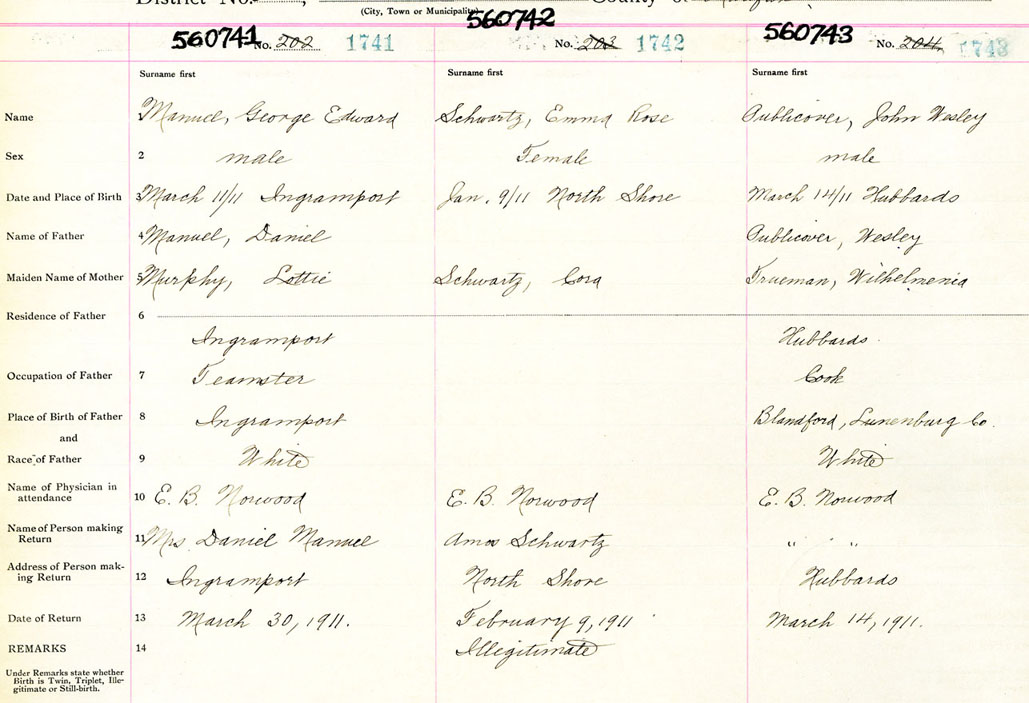 District No. County of
(City, Town or Municipality)
560741 No. 202 1741 560742 No. 203 1742 560743 No. 204 1743
Surname first Surname first Surname first
Name 1 Manuel, George Edward Schwartz, Emma Rose Publicover, John Wesley
Sex 2 male Female male
Date and Place of Birth 3 March 11/11 Ingramport Jan. 9/11 North Shore March 14/11 Hubbards
Name of Father 4 Manuel, Daniel Publicover, Wesley
Maiden Name of Mother 5 Murphy, Lottie Schwartz, Cora Trueman, Wilhelmenia
Residence of Father 6
Ingramport Hubbards
Occupation of Father 7 Teamster Cook
Place of Birth of Father 8 Ingramport Blandford, Lunenburg Co.
and
Race of Father 9 White White
Name of Physician in
attendance 10 E. B. Norwood E. B. Norwood E. B. Norwood
Name of Person making
Return 11 Mrs Daniel Manuel Amos Schwartz " "
Address of Person mak-
ing Return 12 Ingramport North Shore Hubbards
Date of Return 13 March 30, 1911. February 9, 1911 March 14, 1911.
REMARKS 14 Illegitimate
Under Remarks state whether
Birth is Twin, Triplet, Ille-
gitimate or Still-birth.